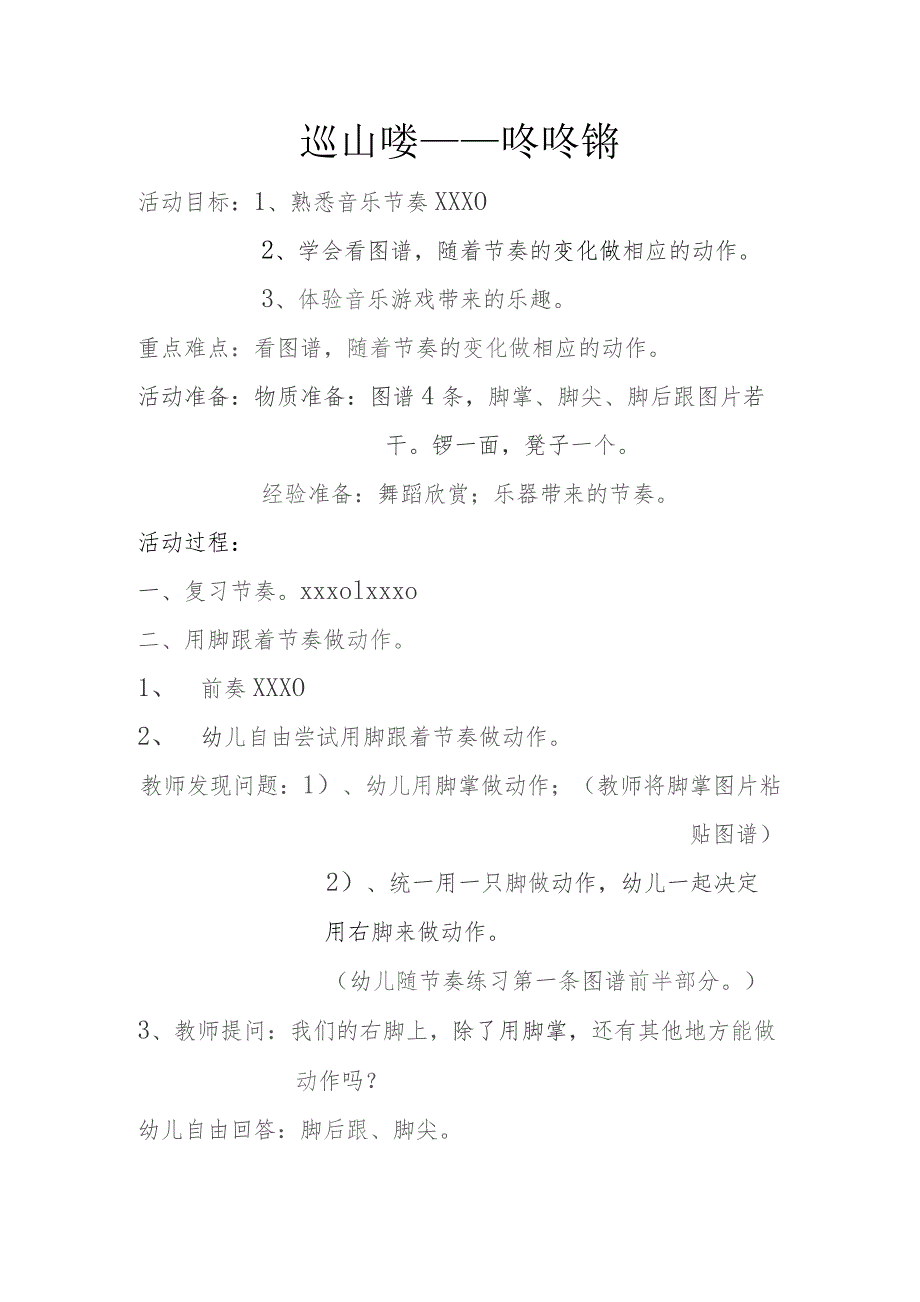 巡山喽——咚咚锵
活动目标：1、熟悉音乐节奏XXXO
2、学会看图谱，随着节奏的变化做相应的动作。
3、体验音乐游戏带来的乐趣。
重点难点：看图谱，随着节奏的变化做相应的动作。
活动准备：物质准备：图谱4条，脚掌、脚尖、脚后跟图片若
干。锣一面，凳子一个。
经验准备：舞蹈欣赏；乐器带来的节奏。
活动过程：
一、复习节奏。xxxolxxxo
二、用脚跟着节奏做动作。
1、 前奏XXXO
2、 幼儿自由尝试用脚跟着节奏做动作。
教师发现问题：1）、幼儿用脚掌做动作；（教师将脚掌图片粘
贴图谱）
2）、统一用一只脚做动作，幼儿一起决定
用右脚来做动作。
（幼儿随节奏练习第一条图谱前半部分。）
3、教师提问：我们的右脚上，除了用脚掌，还有其他地方能做
动作吗？
幼儿自由回答：脚后跟、脚尖。